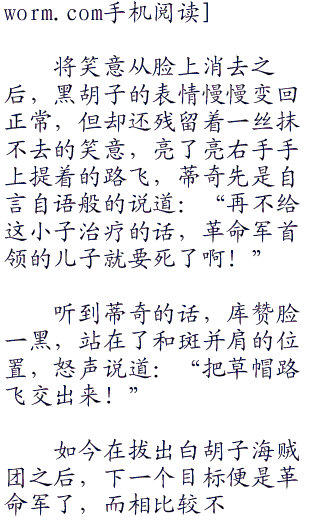 worm.com手机阅读]
将笑意从脸上消去之
后，黑胡子的表情慢慢变回
正常，但却还残留着一丝抹
不去的笑意，亮了亮右手手
上提着的路飞，蒂奇先是自
言自语般的说道：“再不给
这小子治疗的话，革命军首
领的儿子就要死了啊！”
听到蒂奇的话，库赞脸
一黑，站在了和斑并肩的位
置，怒声说道：“把草帽路
飞交出来！”
如今在拔出白胡子海贼
团之后，下一个目标便是革
命军了，而相比较不